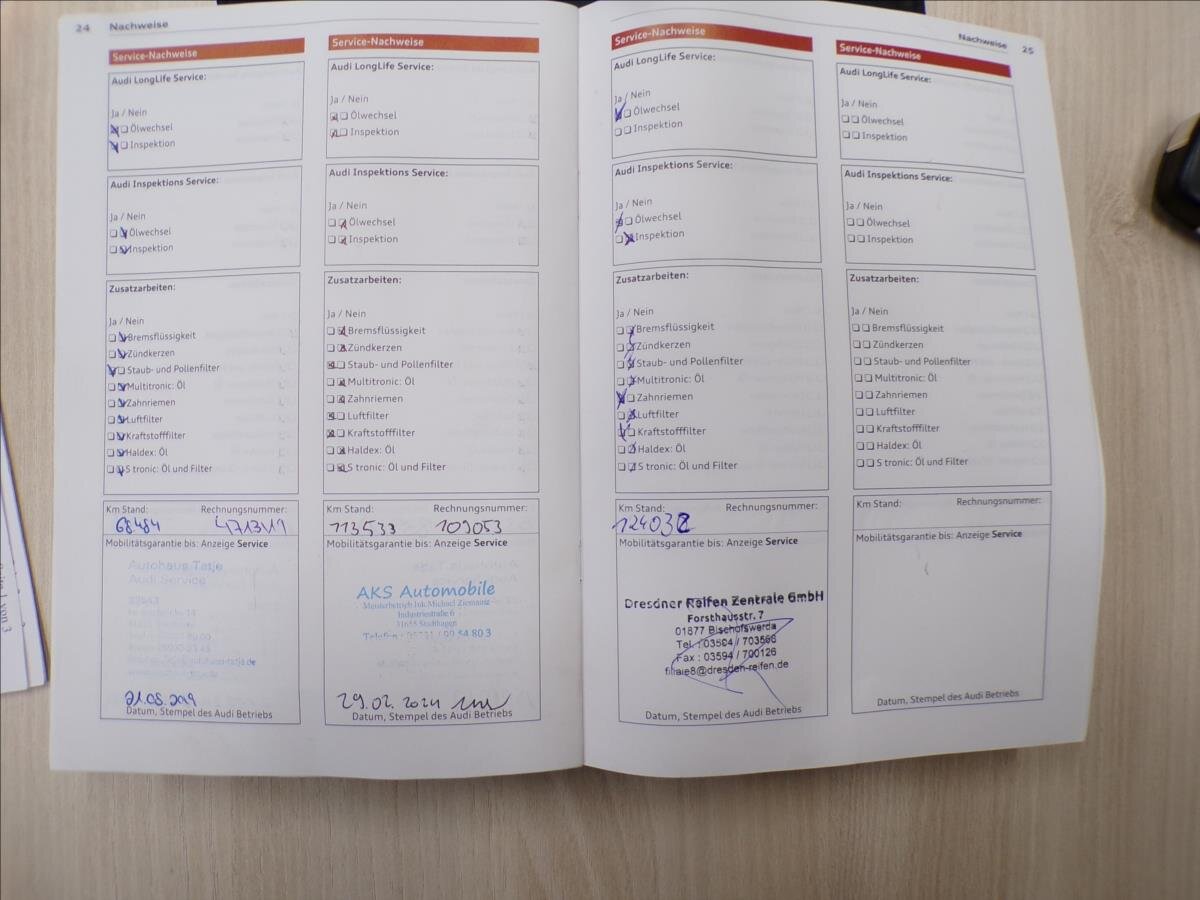 24 Nachweise
Service-Nachweise
Audi LongLife Service:
Ja / Nein
Ölwechsel
Inspektion
Audi Inspektions Service:
Ja / Nein
Ölwechsel
Inspektion
Zusatzarbeiten:
Ja / Nein
Bremsflüssigkeit
Zündkerzen
Staub- und Pollenfilter
Multitronic: Öl
Zahnriemen
Luftfilter
Kraftstofffilter
Haldex: Öl
S tronic: Öl und Filter
Km Stand: Rechnungsnummer:
68484
Mobilitätsgarantie bis: Anzeige Service
Autohaus Tatje
Audi Service
21.08.2019
Datum, Stempel des Audi Betriebs
Service-Nachweise
Audi LongLife Service:
Ja / Nein
Ölwechsel
Inspektion
Audi Inspektions Service:
Ja / Nein
Ölwechsel
Inspektion
Zusatzarbeiten:
Ja / Nein
Bremsflüssigkeit
Zündkerzen
Staub- und Pollenfilter
Multitronic: Öl
Zahnriemen
Luftfilter
Kraftstofffilter
Haldex: Öl
S tronic: Öl und Filter
Km Stand: Rechnungsnummer:
113533 109053
Mobilitätsgarantie bis: Anzeige Service
AKS Automobile
Meisterbetrieb Inh. Michael Ziemann
Industriestraße 6
31655 Stadthagen
Telefon : 05721 / 99 54 80 3
29.02.2024
Datum, Stempel des Audi Betriebs
Nachweise 25
Service-Nachweise
Audi LongLife Service:
Ja / Nein
Ölwechsel
Inspektion
Audi Inspektions Service:
Ja / Nein
Ölwechsel
Inspektion
Zusatzarbeiten:
Ja / Nein
Bremsflüssigkeit
Zündkerzen
Staub- und Pollenfilter
Multitronic: Öl
Zahnriemen
Luftfilter
Kraftstofffilter
Haldex: Öl
S tronic: Öl und Filter
Km Stand: Rechnungsnummer:
124032
Mobilitätsgarantie bis: Anzeige Service
Dresdner Reifen Zentrale GmbH
Forsthausstr. 7
01877 Bischofswerda
Tel. : 03594 / 703566
Fax : 03594 / 700126
filiale8@dresden-reifen.de
Datum, Stempel des Audi Betriebs
Service-Nachweise
Audi LongLife Service:
Ja / Nein
Ölwechsel
Inspektion
Audi Inspektions Service:
Ja / Nein
Ölwechsel
Inspektion
Zusatzarbeiten:
Ja / Nein
Bremsflüssigkeit
Zündkerzen
Staub- und Pollenfilter
Multitronic: Öl
Zahnriemen
Luftfilter
Kraftstofffilter
Haldex: Öl
S tronic: Öl und Filter
Km Stand: Rechnungsnummer:
Mobilitätsgarantie bis: Anzeige Service
Datum, Stempel des Audi Betriebs